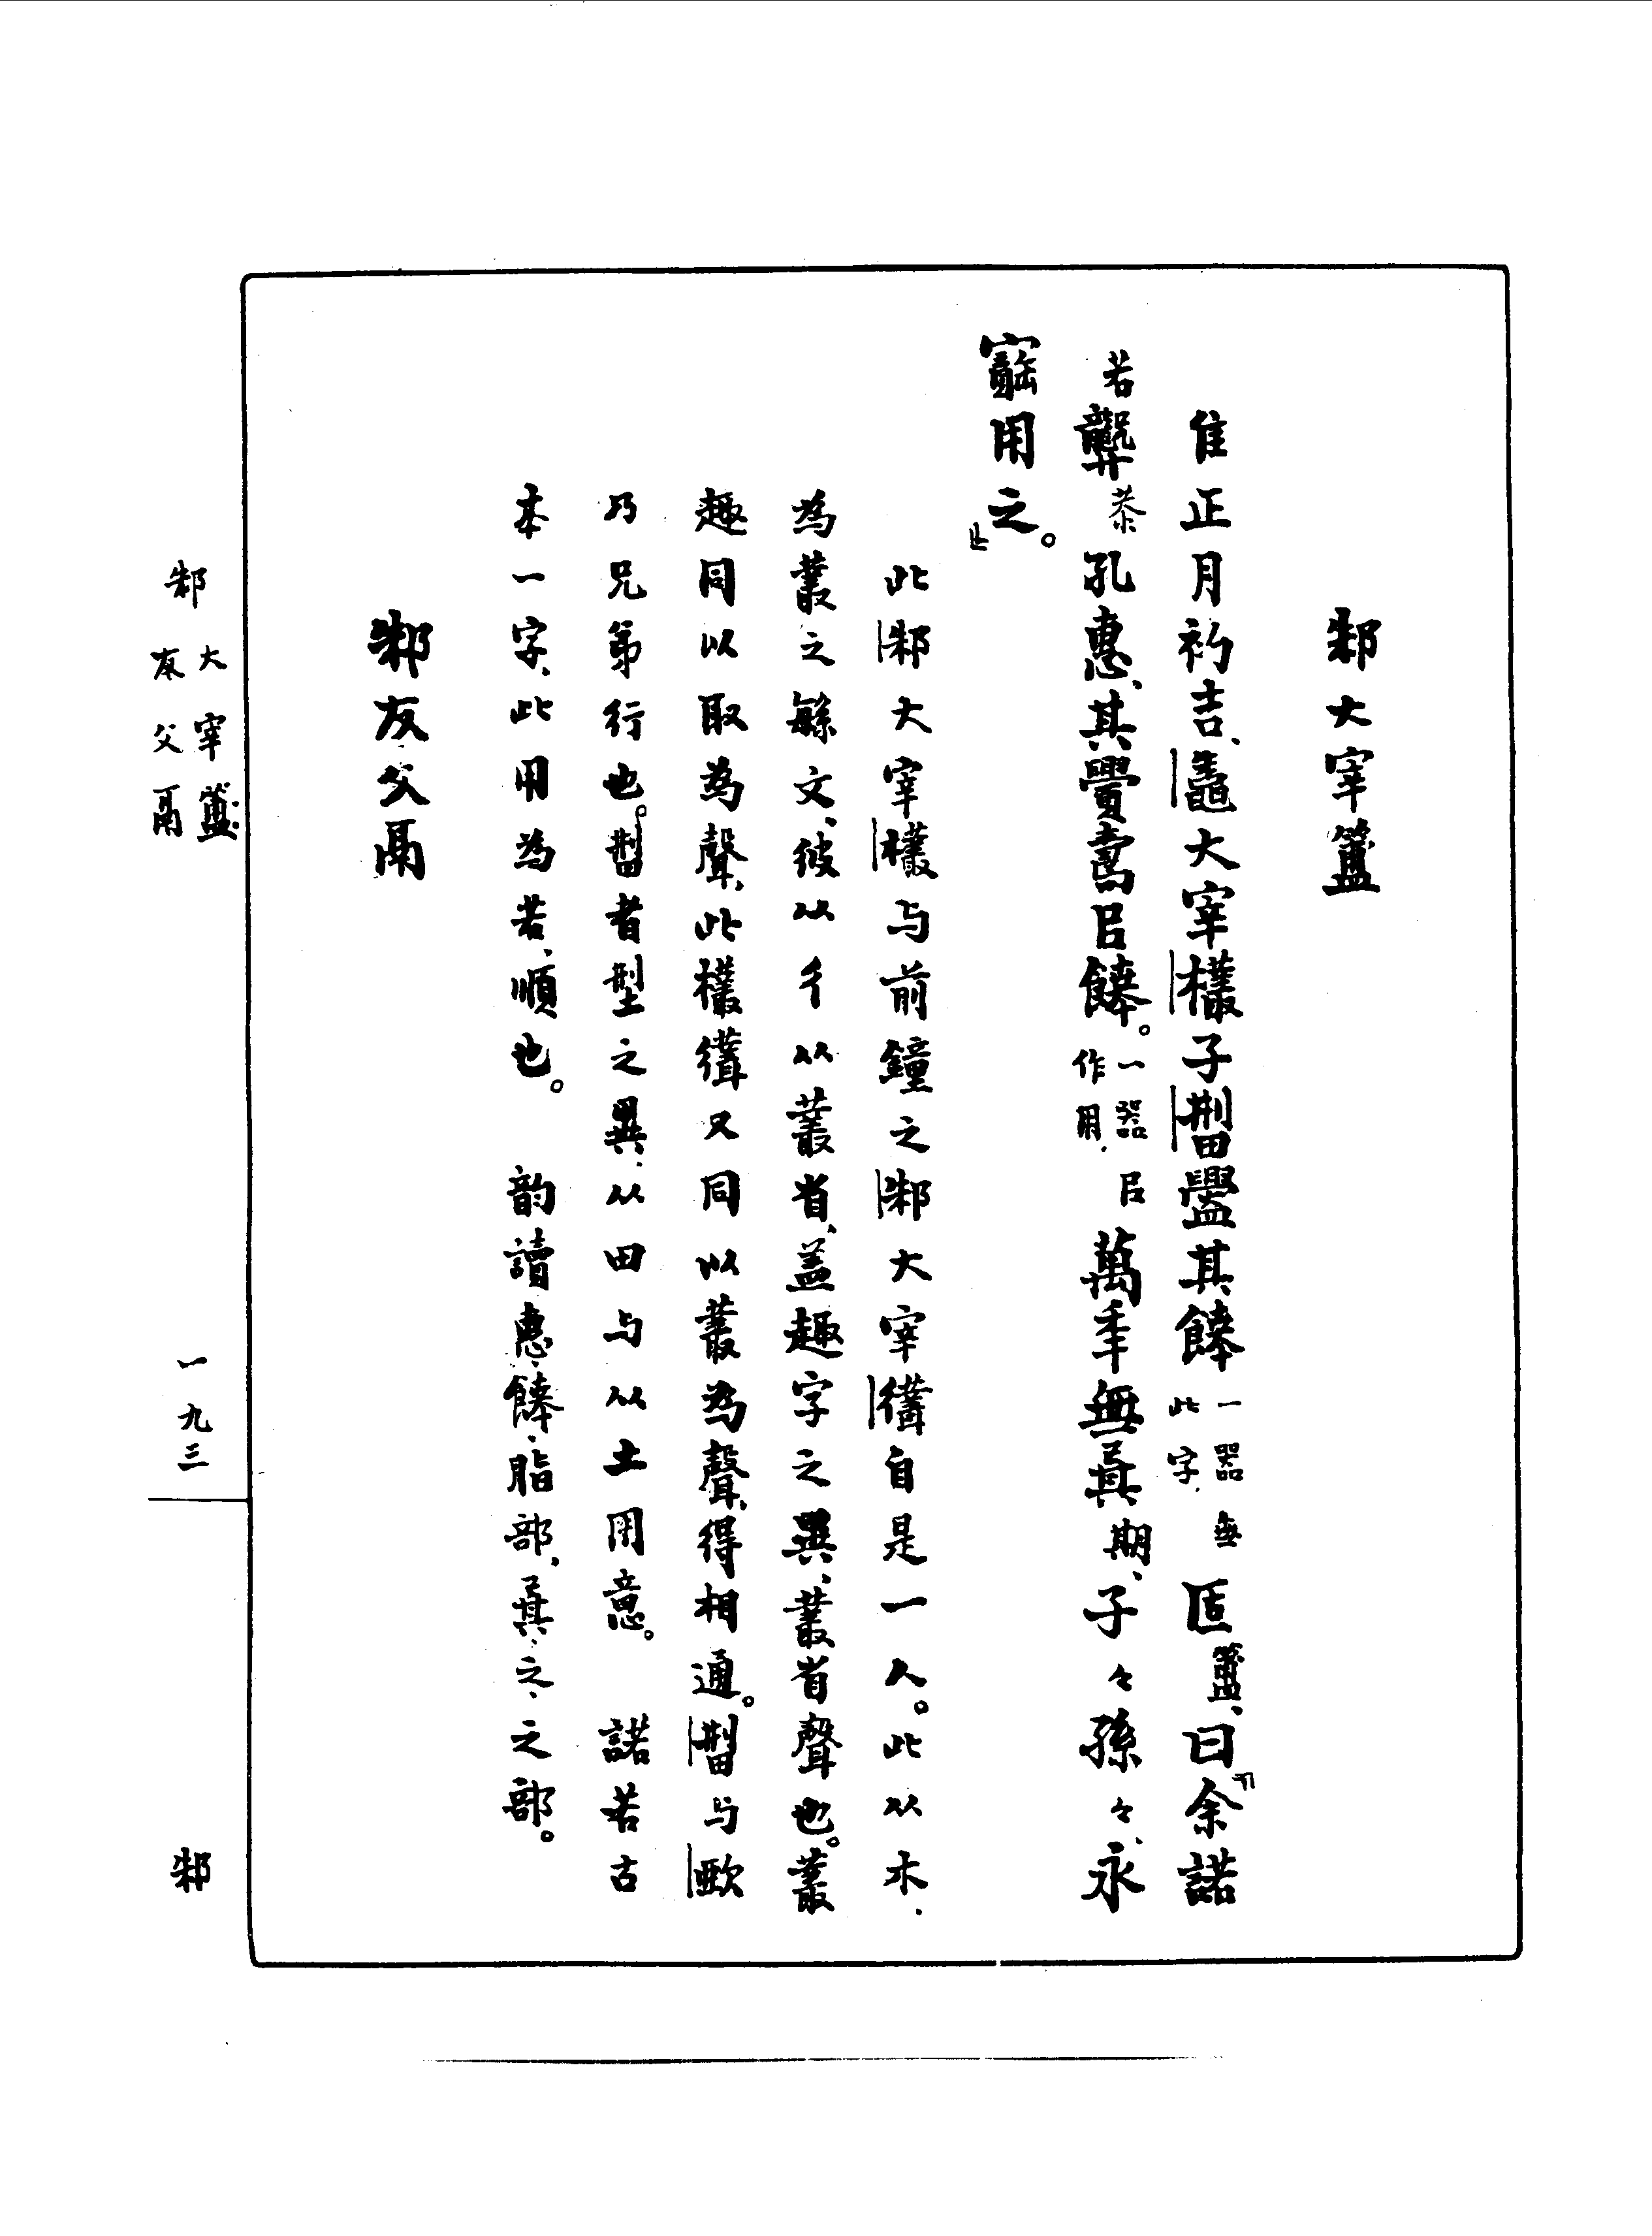 邾大宰簠
隹正月初吉、鼄大宰欉子𠜚鑄其𩜋一器無此字、匜簠、曰「余諾
若龏恭孔惠、其眉壽㠯𩜋。一器作用、㠯萬年無期、子々孫々、永
寶用之。」
此邾大宰欉与前鐘之邾大宰自是一人。此从木、
為叢之緐文、彼从彳从叢省、蓋趣字之異、叢省聲也。叢
趣同以取為聲、此欉又同以叢為聲、得相通。与
乃兄弟行也。者型之異、从田与从土同意。 諾若古
本一字、此用為若、順也。 韵讀惠、𩜋、脂部、、之、之部。
邾友父鬲
邾 大宰簠 友父鬲
一九三
邾